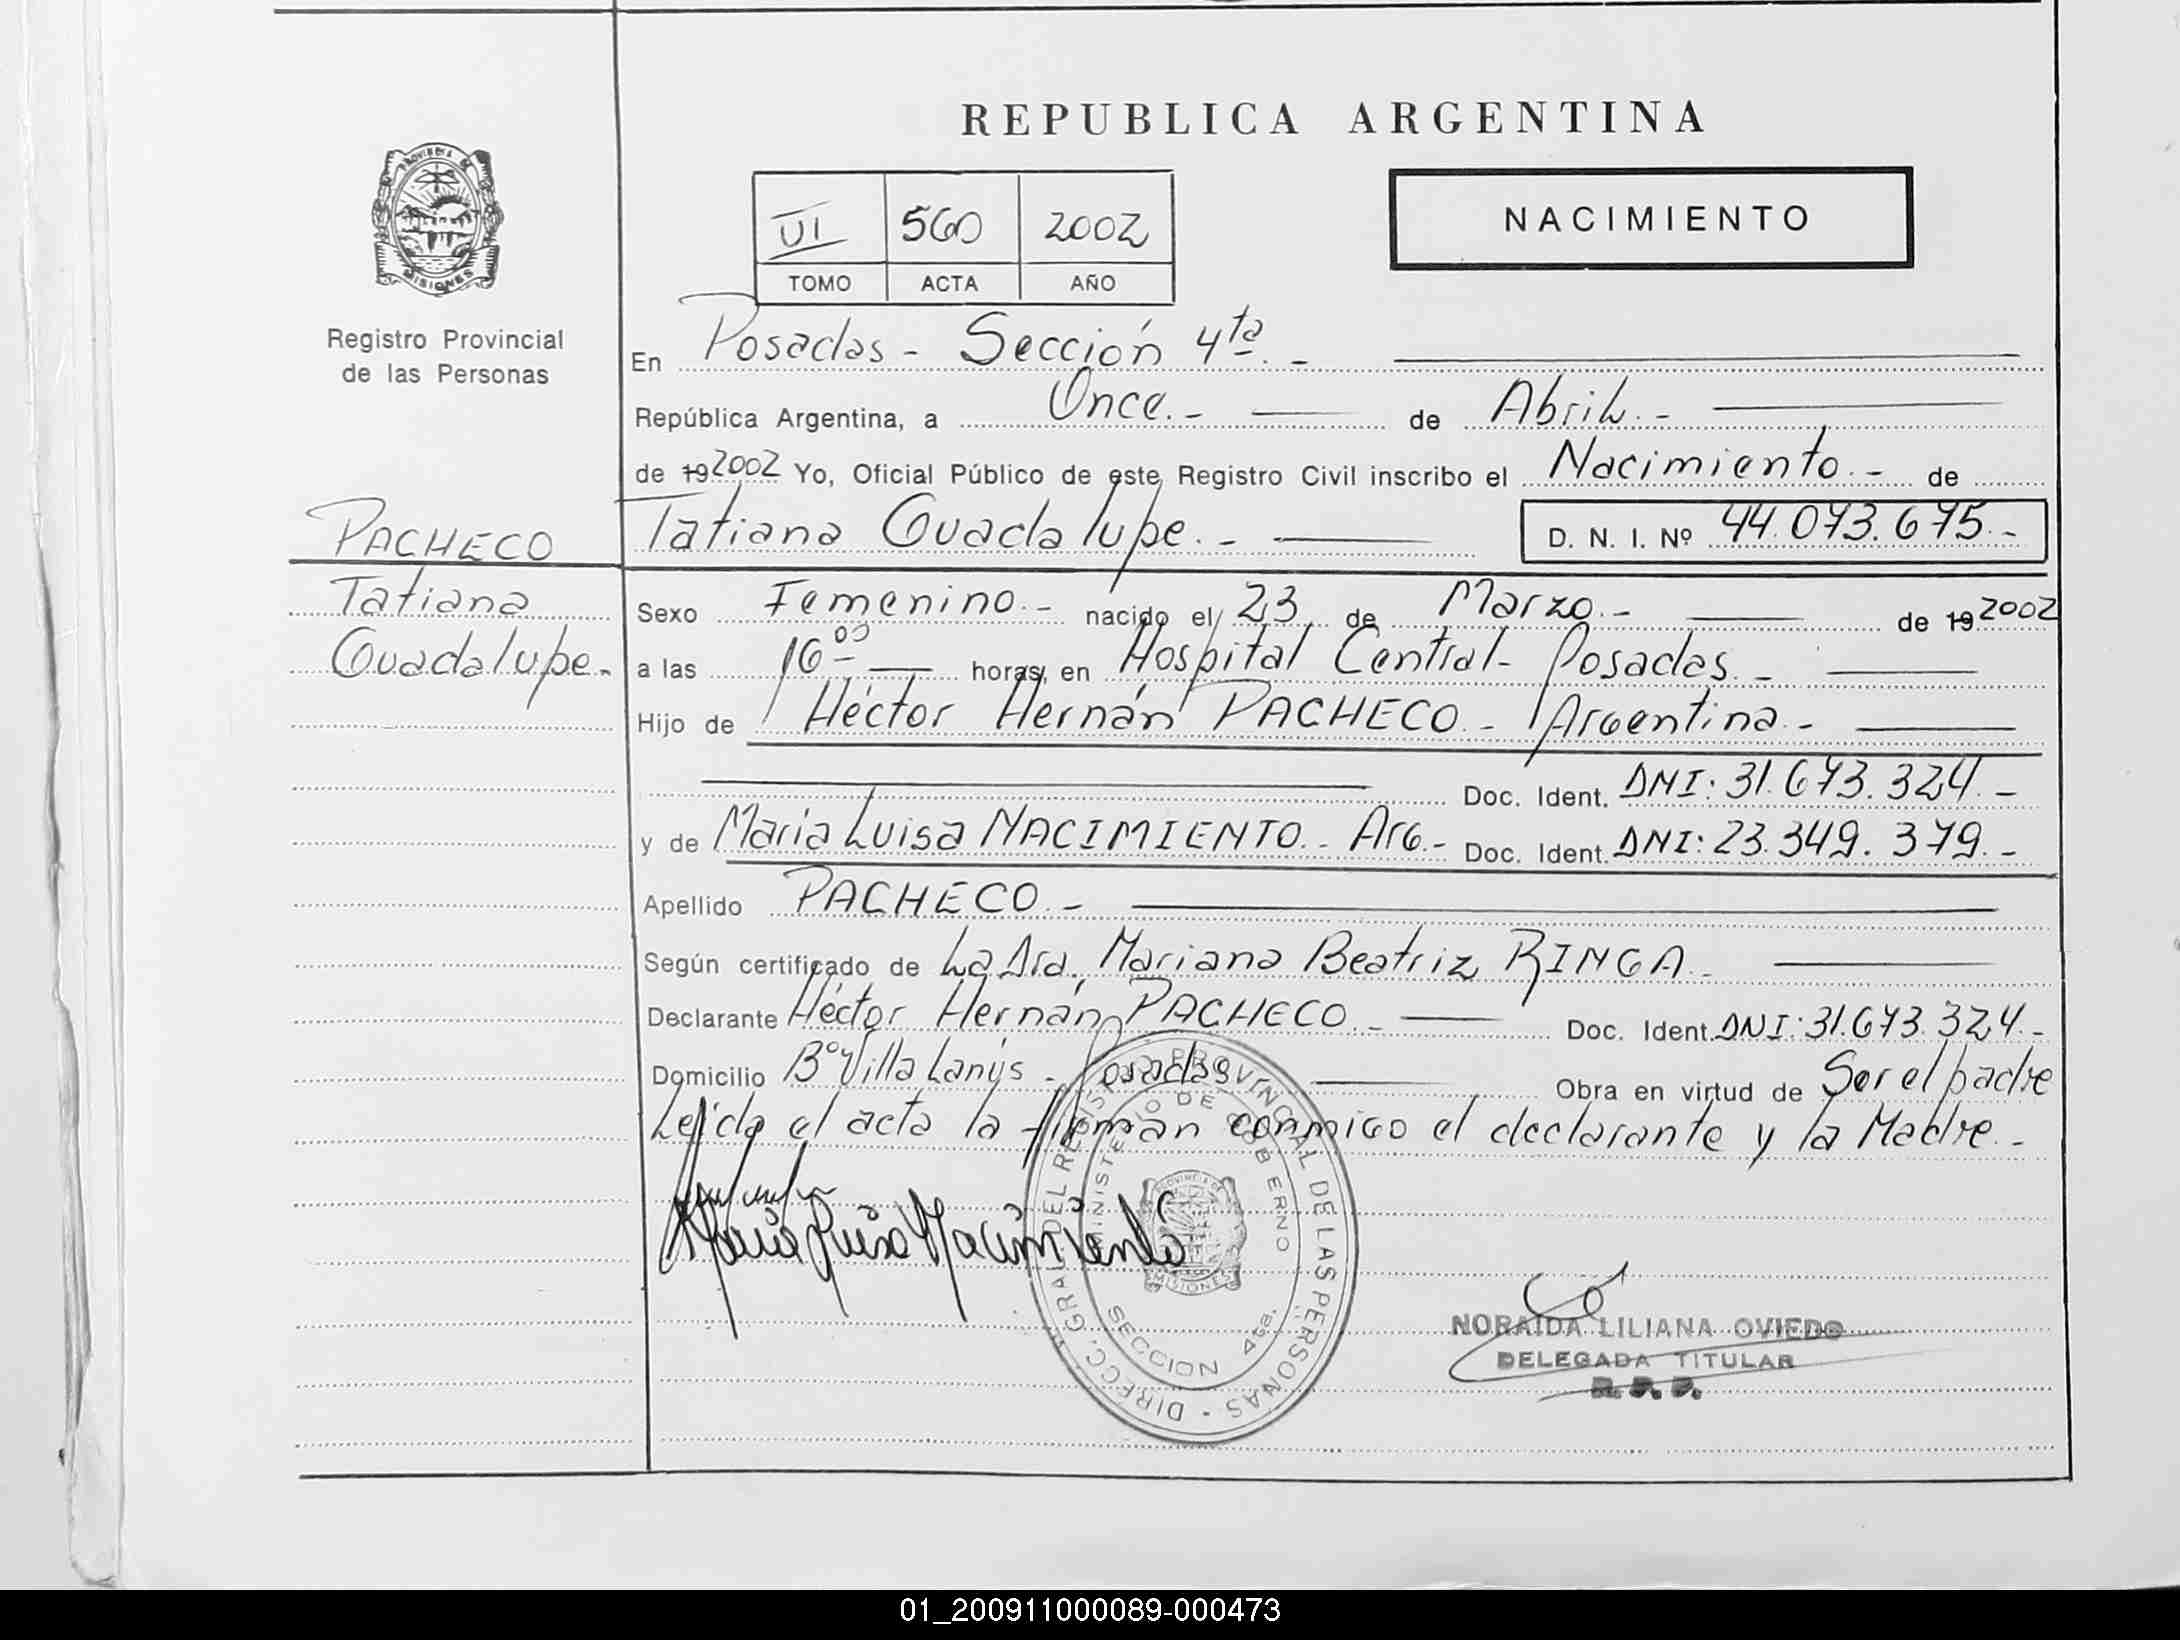 REPUBLICA ARGENTINA
PROVINCIA DE
MISIONES
Registro Provincial
de las Personas
VI 560 2002
TOMO ACTA AÑO
NACIMIENTO
En Posadas - Sección 4ta. -
República Argentina, a Once. - de Abril. -
de 19 2002 Yo, Oficial Público de este Registro Civil inscribo el Nacimiento. - de
PACHECO
Tatiana Guadalupe. - D. N. I. Nº 44.073.675. -
Tatiana
Guadalupe. -
Sexo Femenino. - nacido el 23 de Marzo. - de 19 2002
a las 16 00 horas, en Hospital Central - Posadas. -
Hijo de Héctor Hernán PACHECO. - Argentina. -
Doc. Ident. DNI: 31.673.324. -
y de María Luisa NACIMIENTO. - Arg. - Doc. Ident. DNI: 23.349.379. -
Apellido PACHECO. -
Según certificado de La Dra. Mariana Beatriz RINGA. -
Declarante Héctor Hernán PACHECO. - Doc. Ident. DNI: 31.673.324. -
Domicilio Bº Villa Lanús - Posadas Obra en virtud de Ser el padre
Leída el acta la firman conmigo el declarante y la Madre. -
María Luisa Nacimiento
DIRECC. GRAL DEL REGISTRO PROVINCIAL DE LAS PERSONAS -
MINISTERIO DE GOBIERNO
PROVINCIA DE
MISIONES
SECCION 4ta.
NORAIDA LILIANA OVIEDO
DELEGADA TITULAR
R. P. P.
01_200911000089-000473